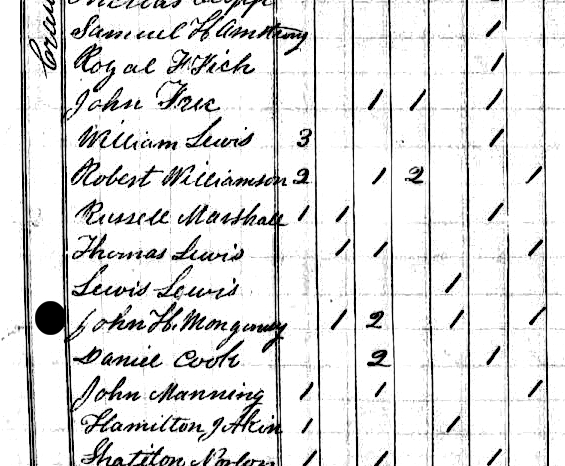 Samuel H Armstrong 1
Royal F Fich 1
John Free 1 1 1
William Lewis 3 1
Robert Williamson 2 1 2 1
Russell Marshall 1 1 1
Thomas Lewis 1 1 1
Lewis Lewis 1
John H. Mongomey 1 2 1 1
Daniel Cook 2 1
John Manning 1 1 1
Hamilton J Akin 1 1
1 1 1